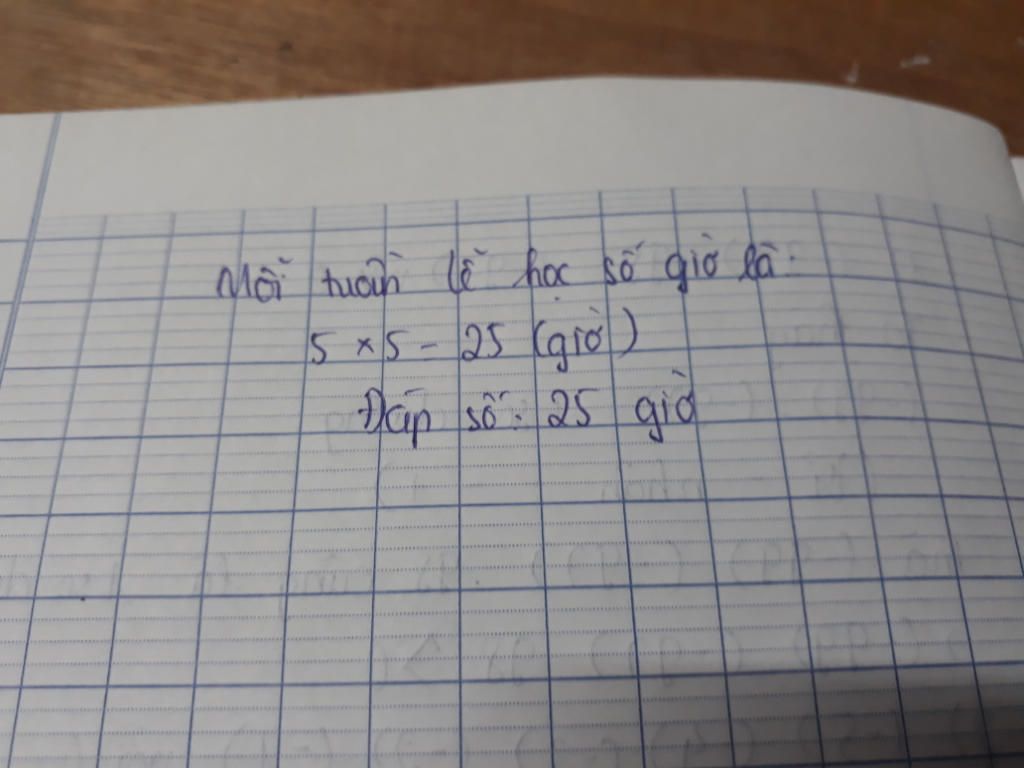 Mỗi tuần lễ học số giờ là:
5 × 5 = 25 (giờ)
Đáp số: 25 giờ